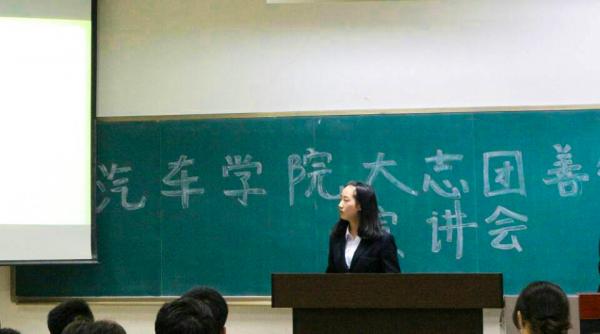 汽车学院大志团善
讲会